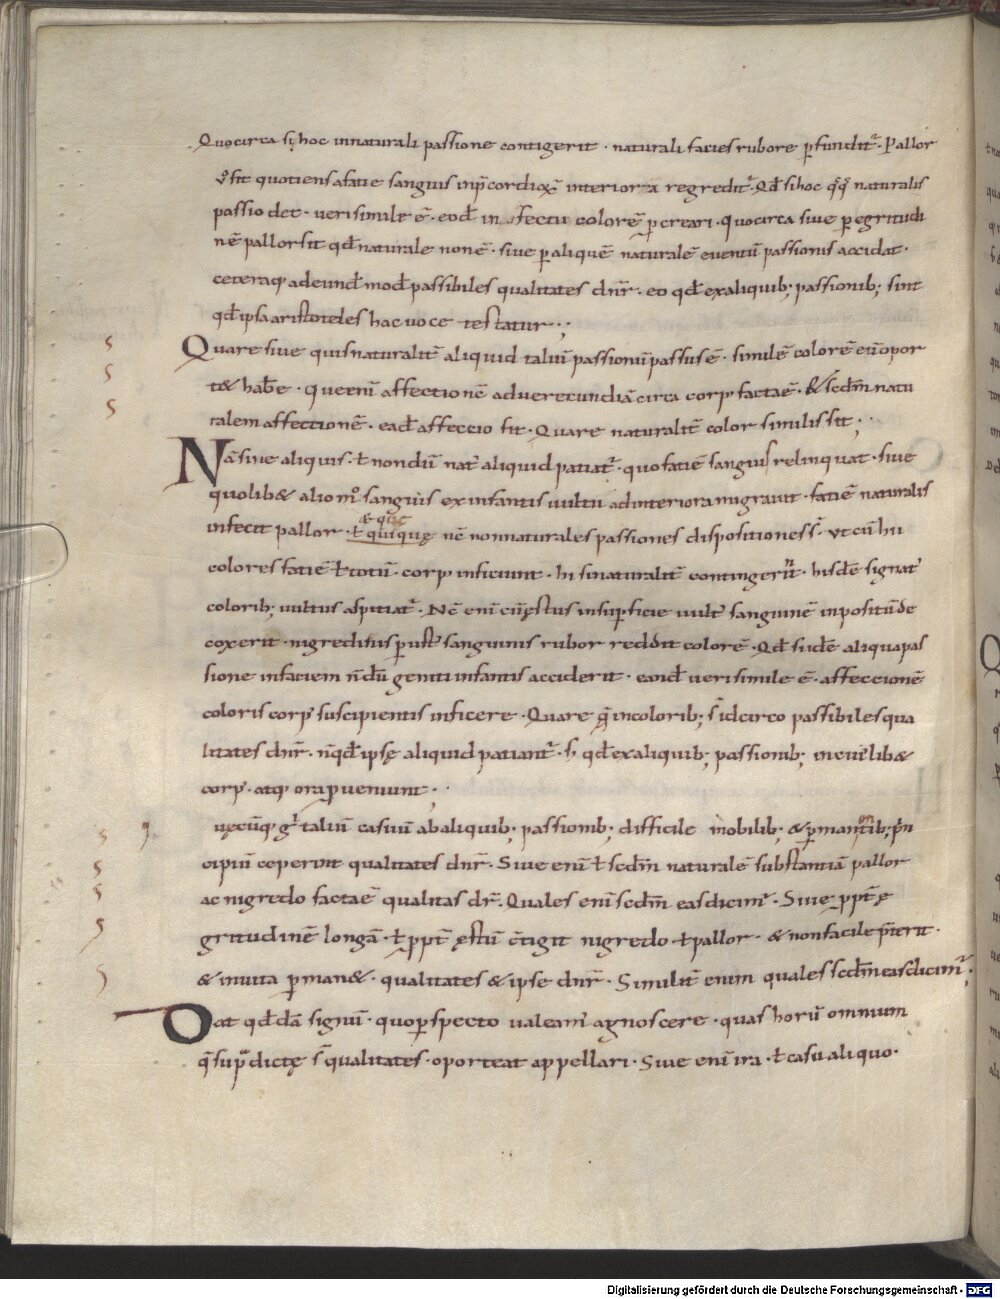 Quocirca si hoc innaturali passione contigerit · naturali facies rubore ꝑfundit᷑. Pallor
v̊ sit quotiens a facie sanguis inp̄cordiorū interiora regredit᷑. Qd̄ si hoc qͦqͣ naturalis
passio det · verisimile ē · eod̄ colorē ꝑcreari · quocirca sive ꝑ egritudi
nē pallor sit qd̄ naturale non ē · sive ꝑ aliquē naturalē eventū passionis accidat ·
ceteraq; ad eund̄ mod̄ passibiles qualitates dn̄r · eo qd̄ ex aliquib; passionib; sint
qd̄ ipsa aristoteles hac voce testatur ·;
Quare sive quis naturalit̄ aliquid talium passionū passus ē · similē colorē eū opor
t& hab̄e · que enī affectionē ad verecundiā circa corp' facta ē · & scd̄m natu
ralem affectionē · ead̄ affeccio fit · Quare naturalit̄ color similis sit ; ·
Nā sive aliquis · ł nondū nat' aliquid patiat᷑ · quo faciē sanguis relinquat · sive
quolib& alio mͦ sanguis ex infantis vultu ad interiora migravit · faciē naturalis
infecit pallor ·
& quę
ł quisquę nē non naturales passiones dispositiones s᷑ · vt cū hii
colores faciē ł totū · corp' inficiunt · hi si naturalit̄ contingerīt · hisdē signat'
colorib; vultus aspiciat᷑ · Nē enī cū ęstus insuꝑficie vult' sanguinē inpositū de
coxerit · nigredi sus ꝑust' sanguinis rubor reddit colorē · Qd̄ si id̄e aliqua pas
sione infaciem nd̄ū geniti infantis acciderit · eand̄ verisimile ē · affeccionē
coloris corp' suscipientis inficere · Quare q̄ in colorib; s᷑ idcirco passibiles qua
litates dn̄r · n̄ qd̄ ipsę aliquid patiant᷑ · s; qd̄ ex aliquib; passionib; in cui'lib&
corp' · atq; ora ꝑveniunt ; · ·
uęcūq; g' taliū casuum ab aliquib; passionib; difficile mobilib; & ꝑmanentib; prin
cipiū ceperunt qualitates dn̄r · Sive enī ł scd̄m naturalē substantiā pallor
ac nigredo facta ē qualitas dr̄. Quales enī scd̄m eas dicim᷑ · Sive ꝓpt̄ ę
gritudinē longā · ł ꝓpt̄ ęstū c̄tigit nigredo · ł pallor · & non facile p̄terit ·
& in vita ꝑman& · qualitates & ipse dn̄r · Similit̄ enim quales scd̄m eas dicim᷑;
Dat qd̄dā signū · quo ꝑspecto valeam' agnoscere · quas horū omnium
q̄ supͣdictę s᷑ qualitates · oporteat appellari · Sive enī ira · ł casu aliquo ·
Digitalisierung gefördert durch die Deutsche Forschungsgemeinschaft - DFG